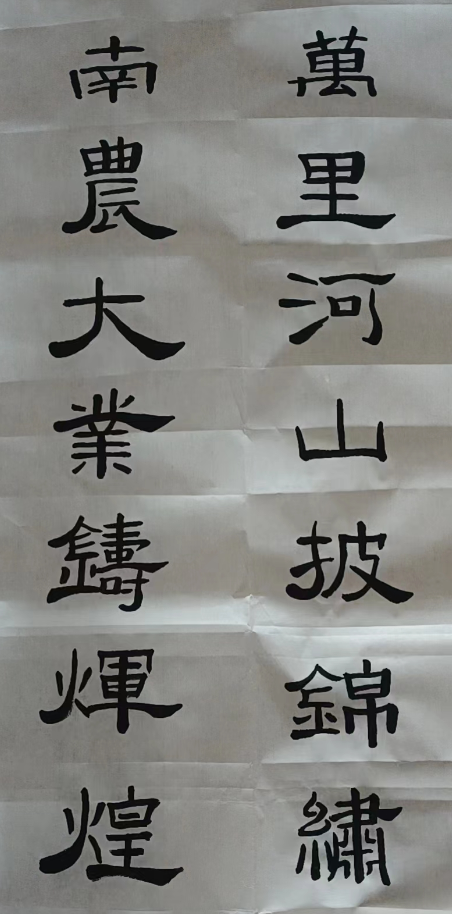 萬里河山披錦繡
南農大業鑄輝煌